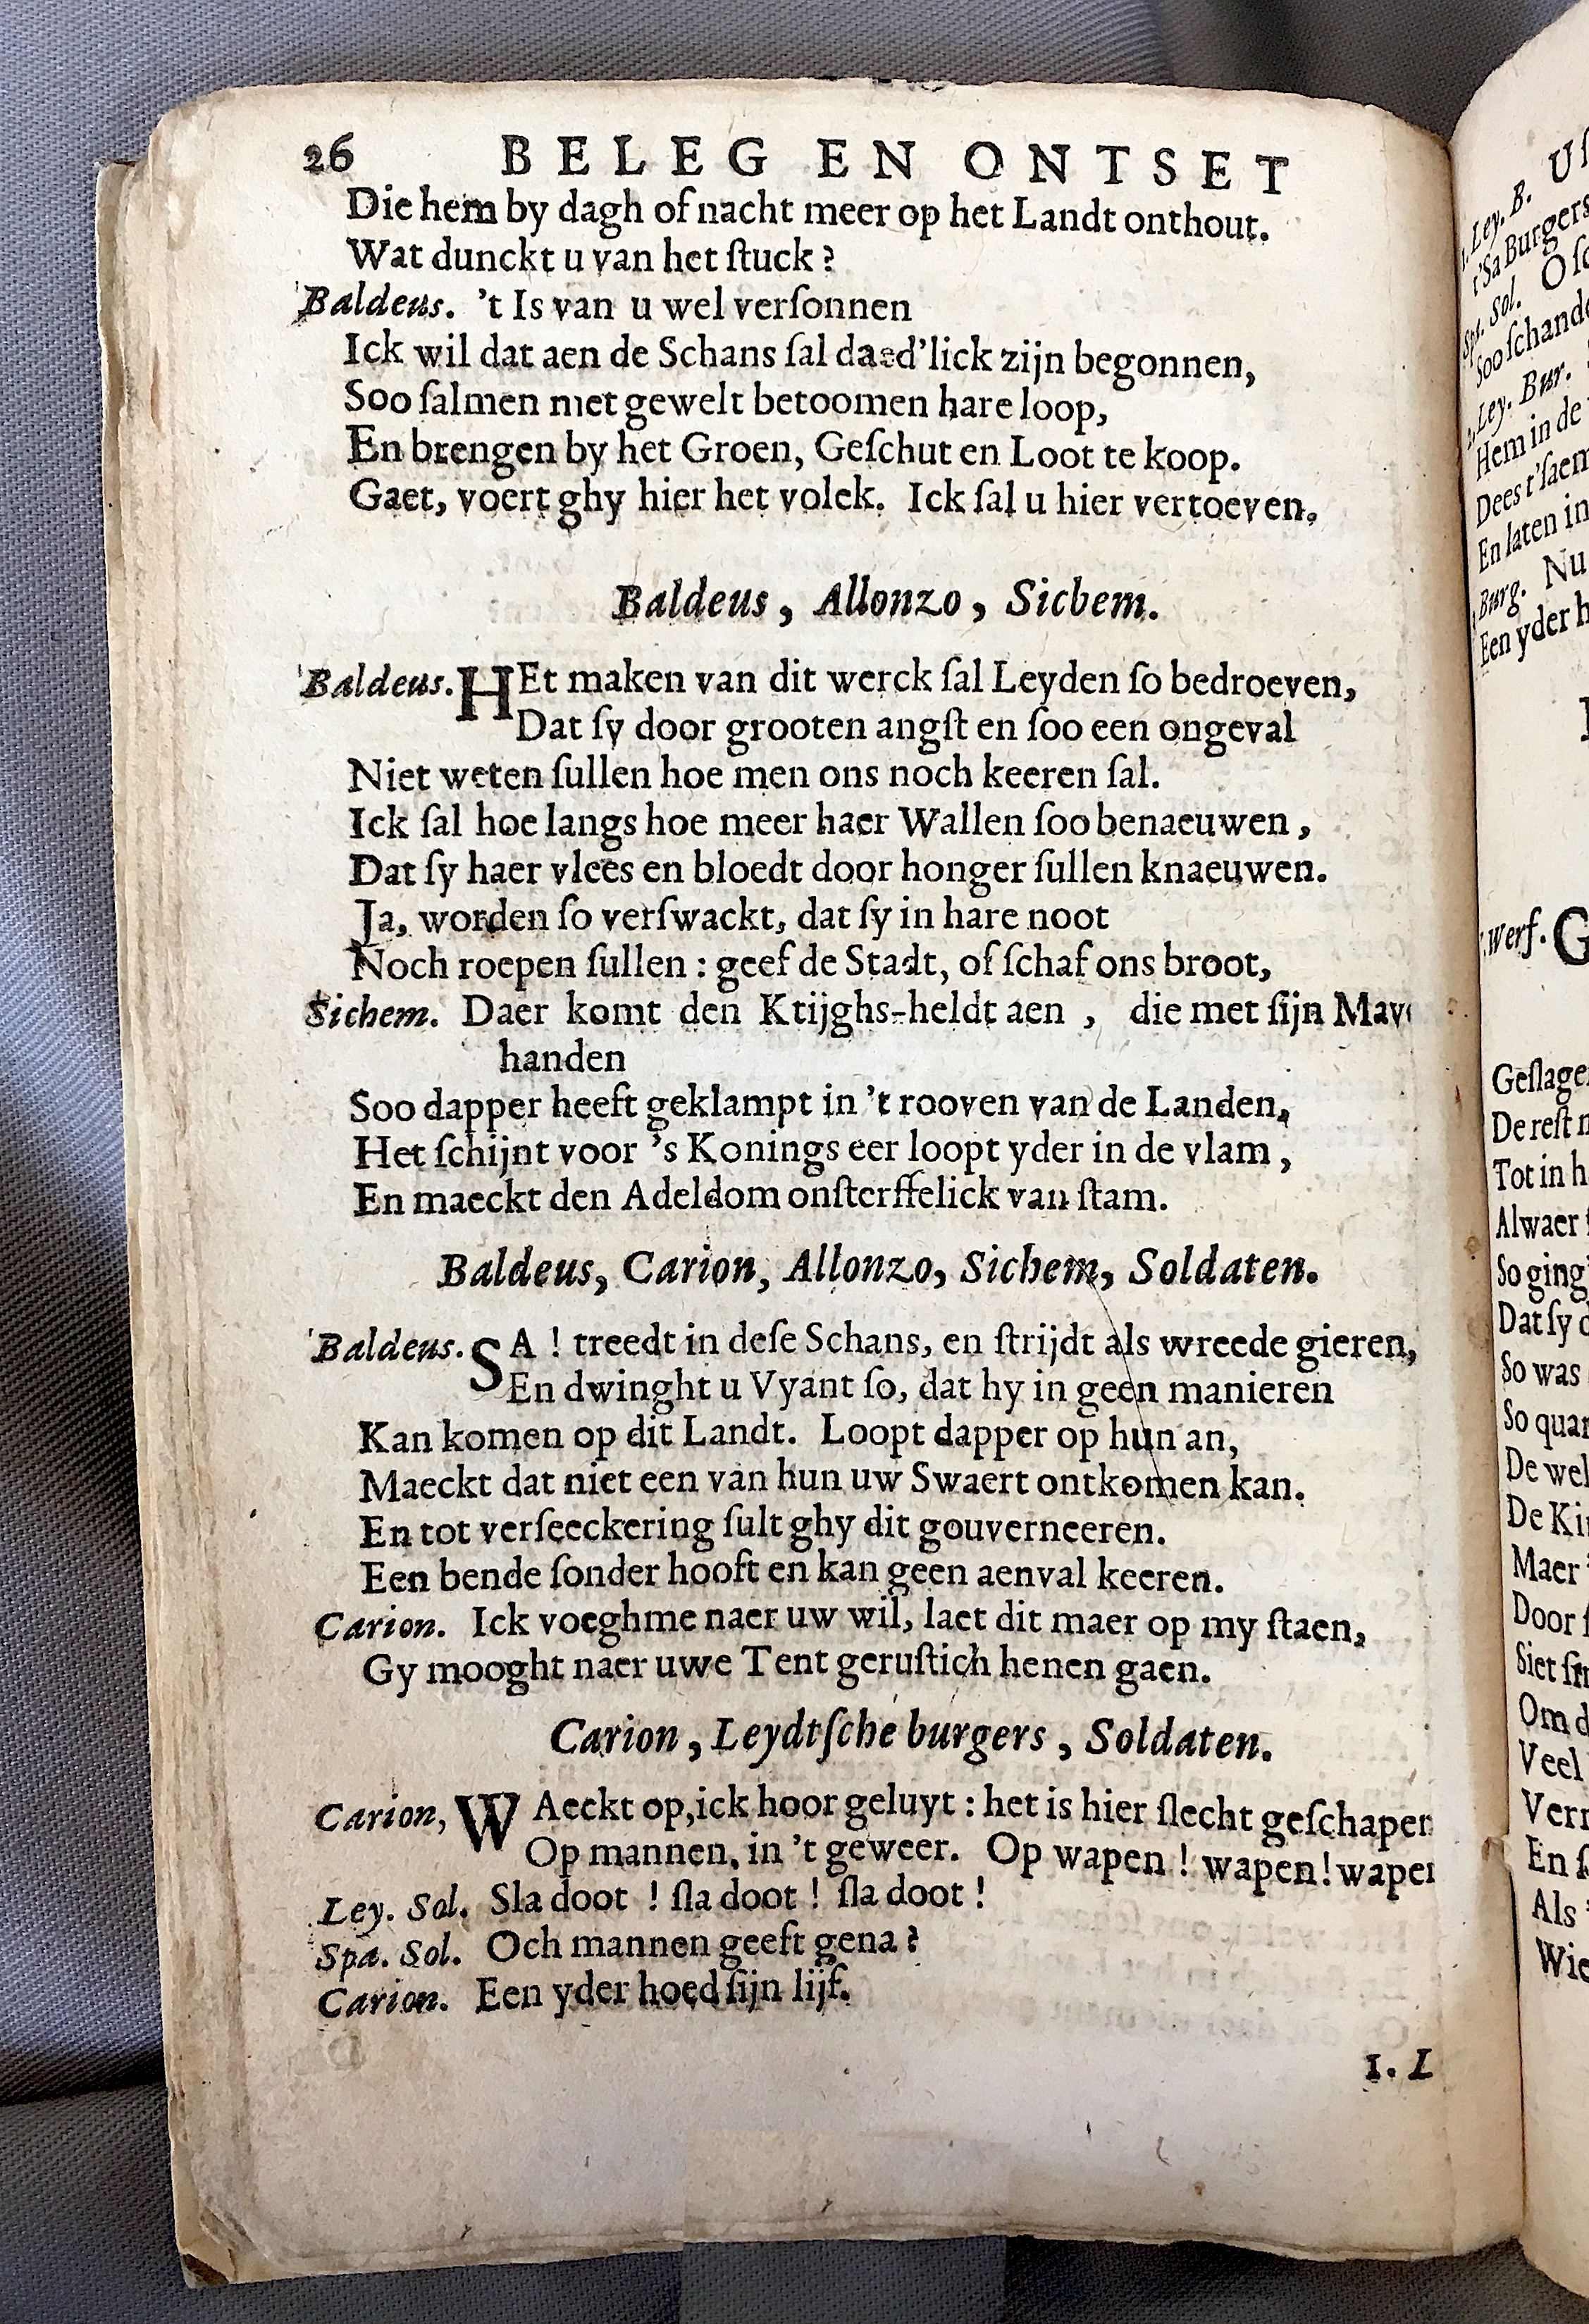 26 BELEG EN ONTSET
Die hem by dagh of nacht meer op het Landt onthout.
Wat dunckt u van het ſtuck?
Baldeus. 't Is van u wel verſonnen
Ick wil dat aen de Schans ſal daed'lick zijn begonnen,
Soo ſalmen met gewelt betoomen hare loop,
En brengen by het Groen, Geſchut en Loot te koop.
Gaet, voert ghy hier het volck. Ick ſal u hier vertoeven.
Baldeus, Allonzo, Sichem.
Baldeus. HEt maken van dit werck ſal Leyden ſo bedroeven,
Dat ſy door grooten angſt en ſoo een ongeval
Niet weten ſullen hoe men ons noch keeren ſal.
Ick ſal hoe langs hoe meer haer Wallen ſoo benaeuwen,
Dat ſy haer vlees en bloedt door honger ſullen knaeuwen.
Ja, worden ſo verſwackt, dat ſy in hare noot
Noch roepen ſullen: geef de Stadt, of ſchaf ons broot,
Sichem. Daer komt den Ktijghs-heldt aen, die met ſijn
handen
Soo dapper heeft geklampt in 't rooven van de Landen,
Het ſchijnt voor 's Konings eer loopt yder in de vlam,
En maeckt den Adeldom onſterffelick van ſtam.
Baldeus, Carion, Allonzo, Sichem, Soldaten.
Baldeus. SA! treedt in deſe Schans, en ſtrijdt als wreede gieren,
En dwinght u Vyant ſo, dat hy in geen manieren
Kan komen op dit Landt. Loopt dapper op hun an,
Maeckt dat niet een van hun uw Swaert ontkomen kan.
En tot verſeeckering ſult ghy dit gouverneeren.
Een bende ſonder hooft en kan geen aenval keeren.
Carion. Ick voeghme naer uw wil, laet dit maer op my ſtaen,
Gy mooght naer uwe Tent geruſtich henen gaen.
Carion, Leydtſche burgers, Soldaten.
Carion, WAeckt op, ick hoor geluyt: het is hier ſlecht geſchapen
Op mannen, in 't geweer. Op wapen! wapen! wapen
Ley. Sol. Sla doot! ſla doot! ſla doot!
Spa. Sol. Och mannen geeft gena?
Carion. Een yder hoed ſijn lijf.
1. L
1. Ley. B.
t'Sa Burgers
Spa. Sol. O
Soo
2. Ley. Bur.
Hem in de
Dees t'ſaem
En laten in
Burg. Nu
Een yder
Werf. G
De reſt
Tot in
Alwaer
So ging
Dat ſy
So was
So
De
De
Maer
Door
Siet
Om
Veel
En
Als